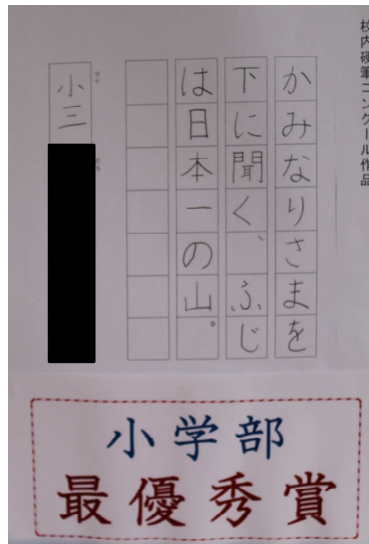 校内硬筆コンクール作品
かみなりさまを
下に聞く、ふじ
は日本一の山。
小三
小学部
最優秀賞